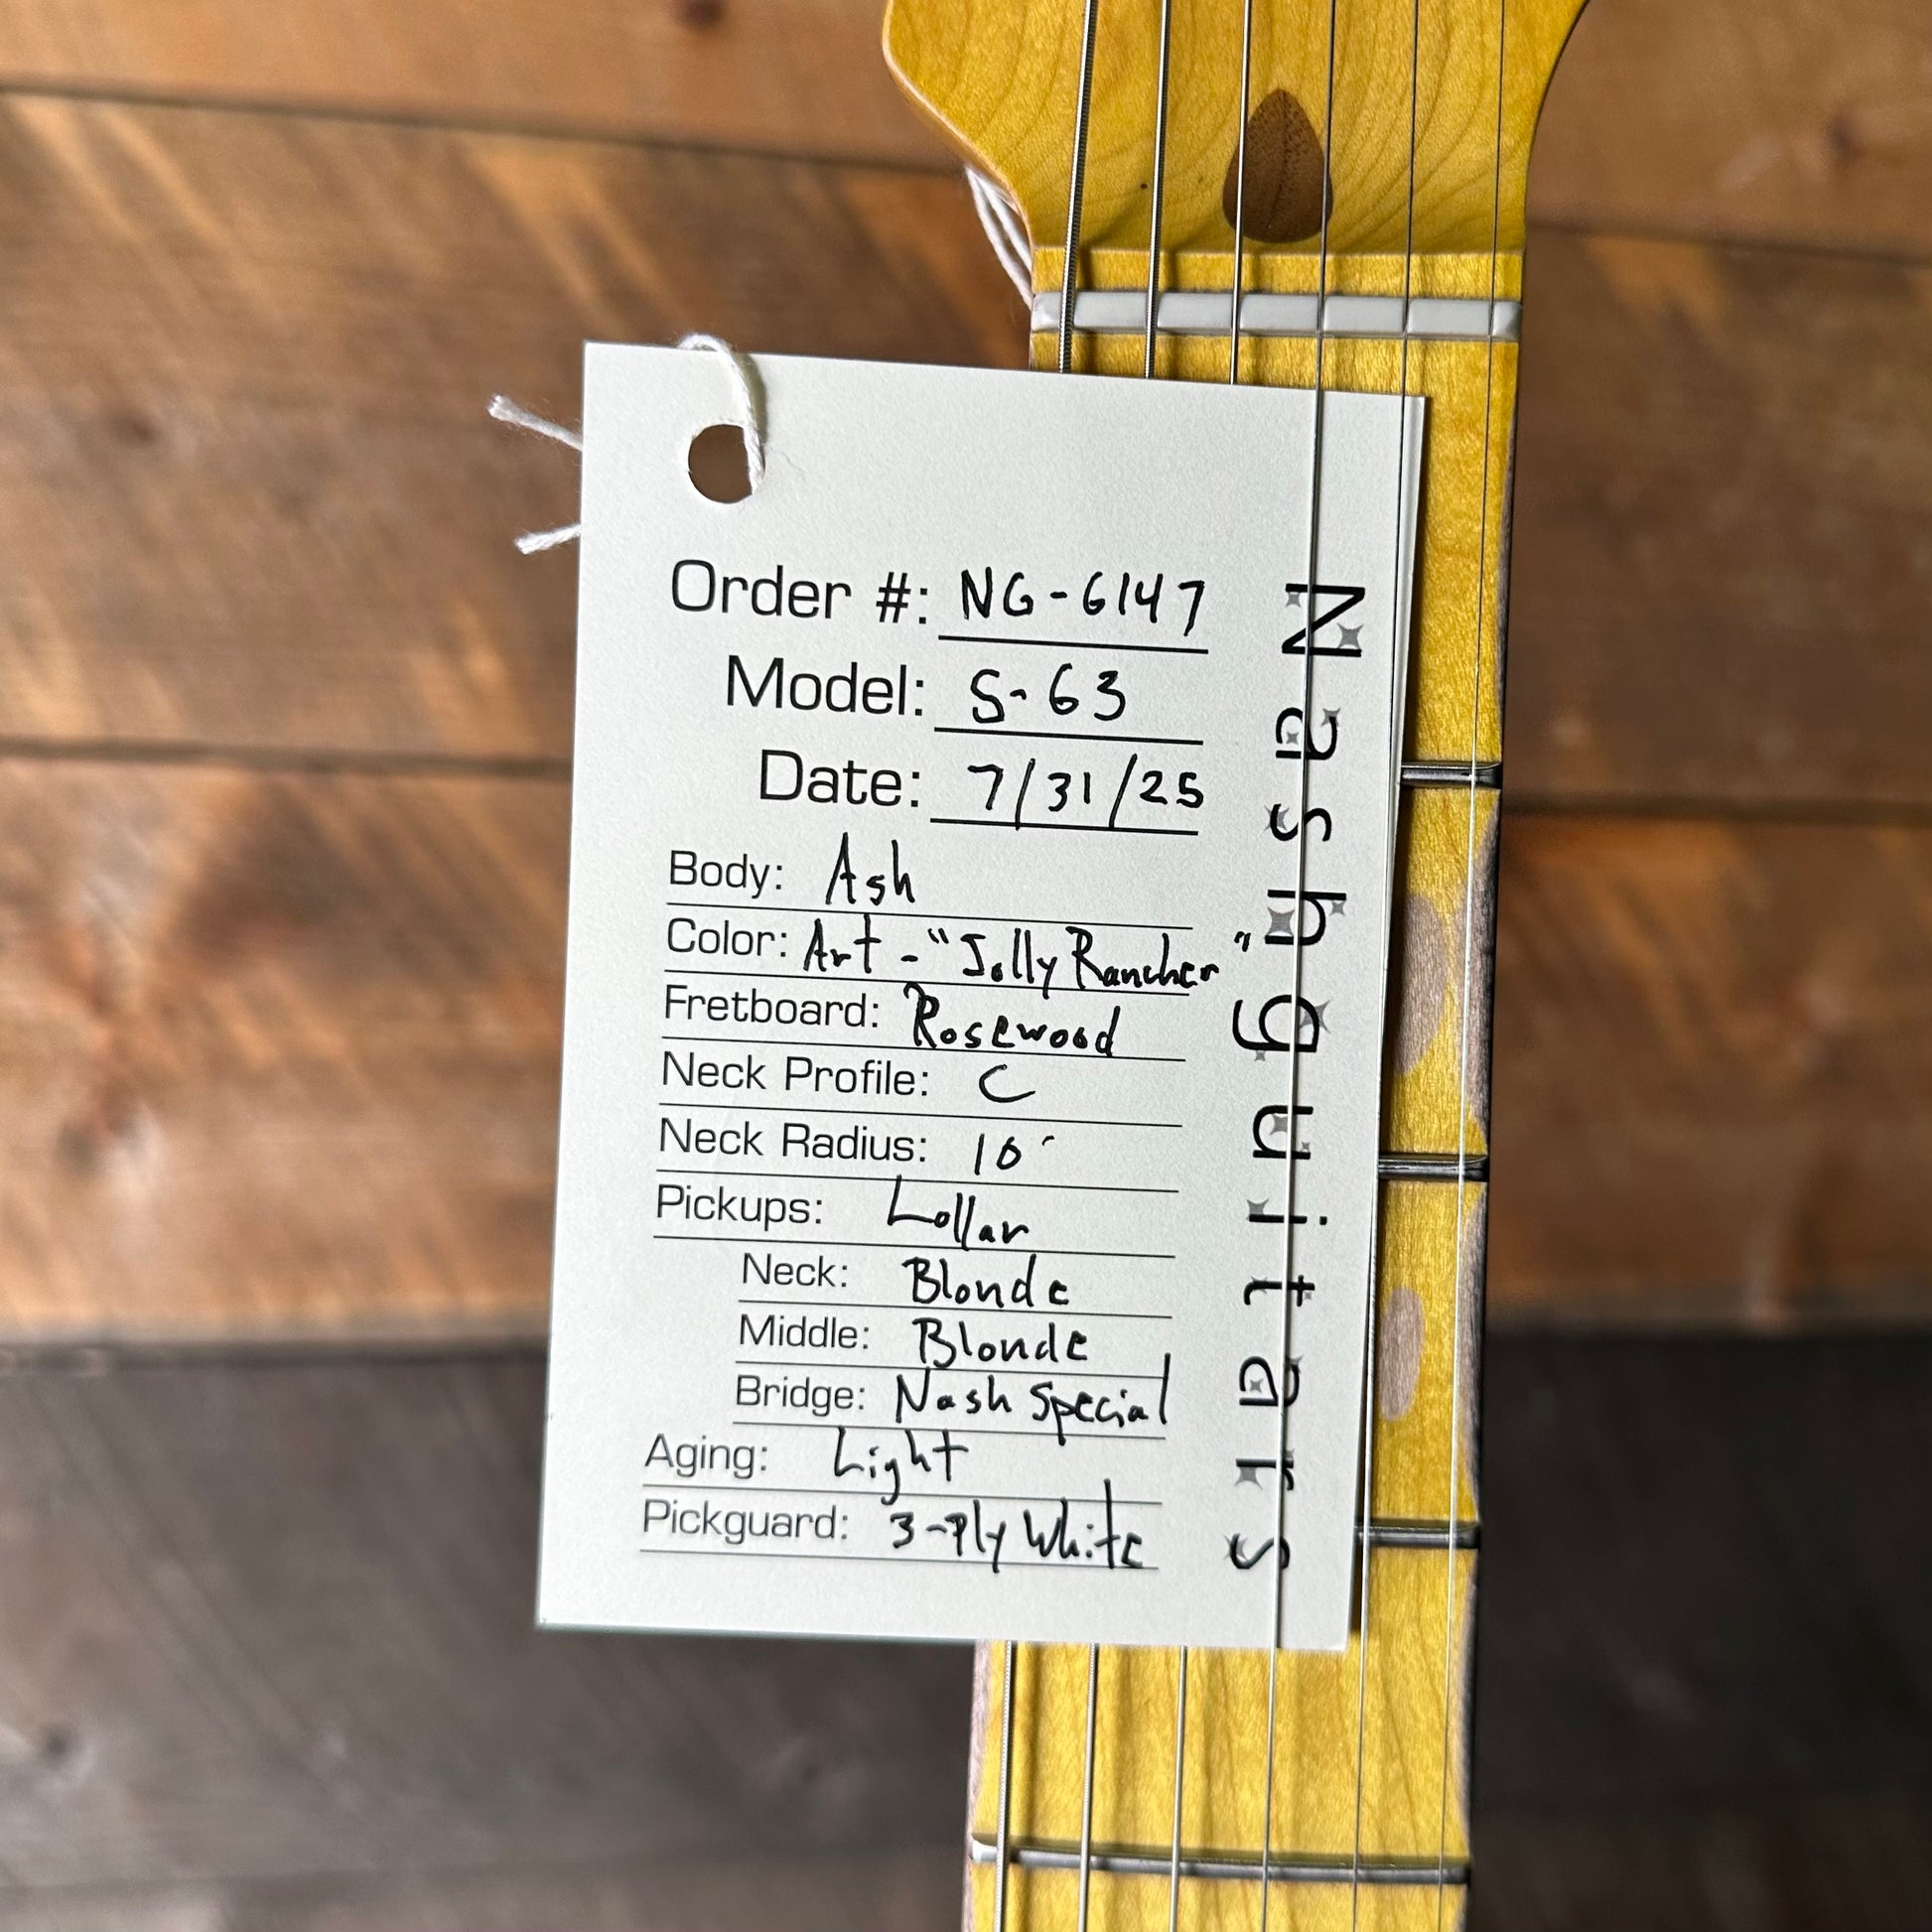 Order #: NG-6147
Model: S-63
Date: 7/31/25
Body: Ash
Color: Art - "Jolly Rancher"
Fretboard: Rosewood
Neck Profile: C
Neck Radius: 10"
Pickups: Lollar
Neck: Blonde
Middle: Blonde
Bridge: Nash Special
Aging: Light
Pickguard: 3-Ply White
Nashguitars